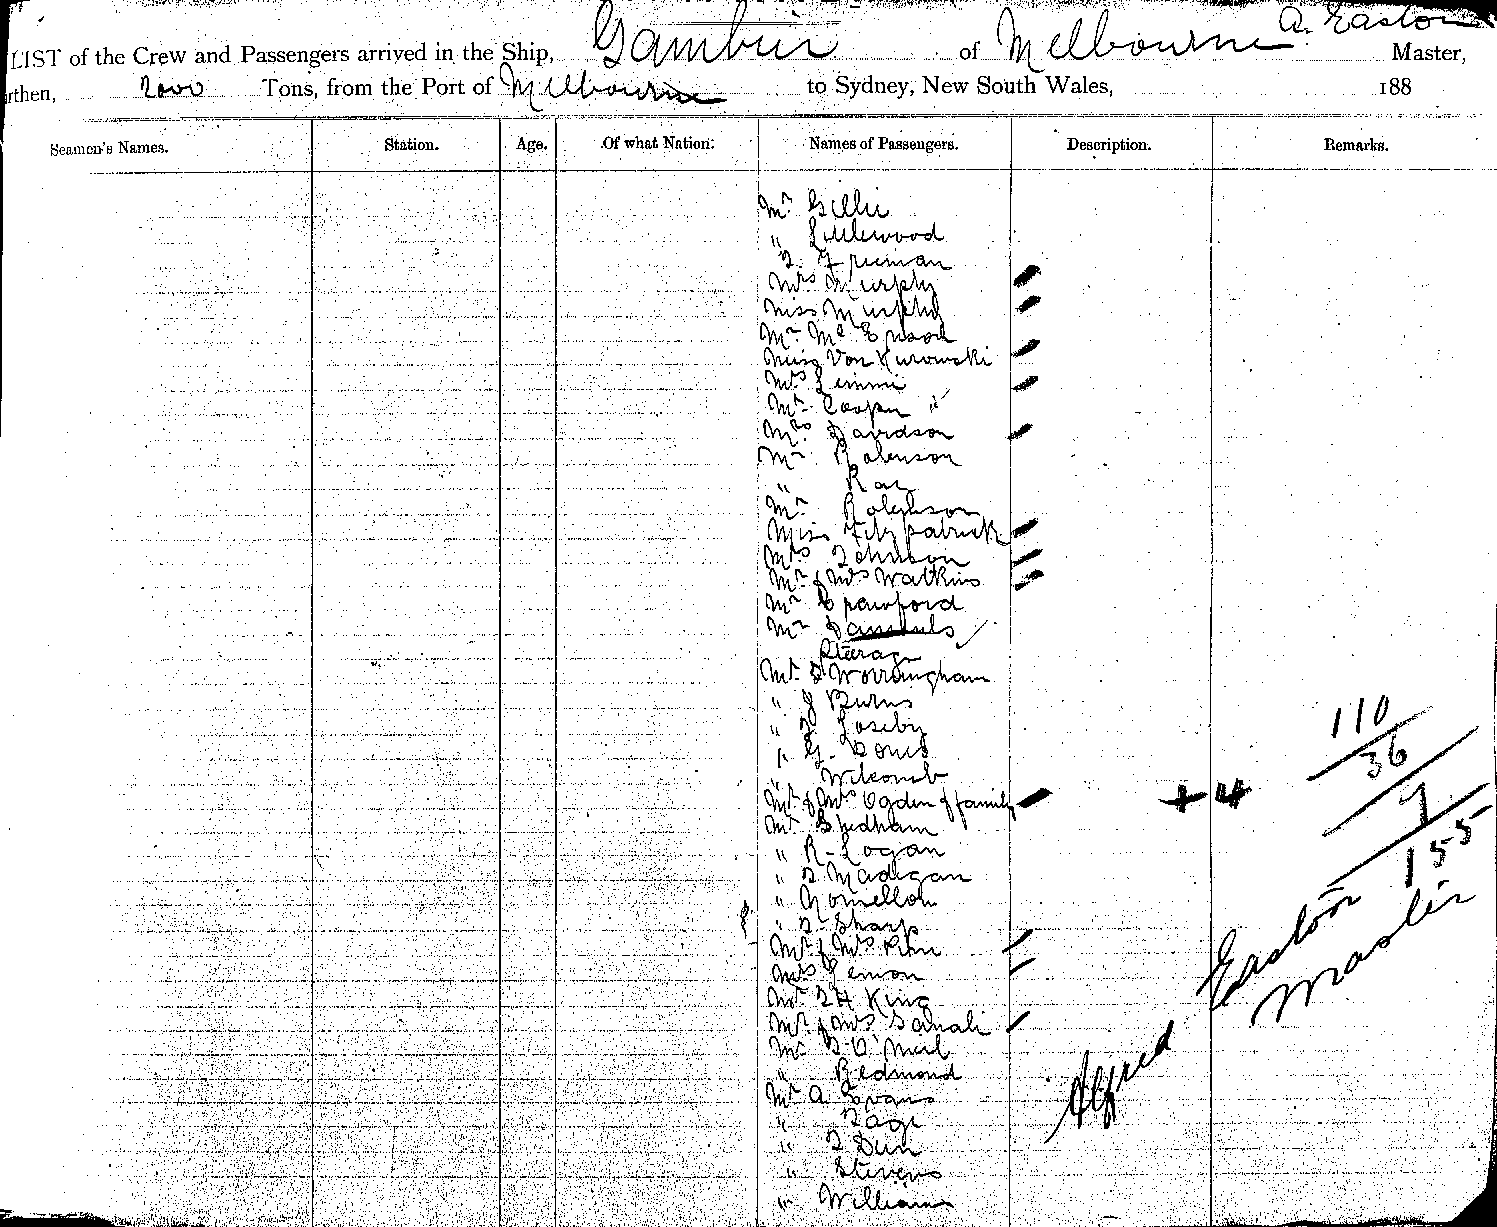 LIST of the Crew and Passengers arrived in the Ship, Gambier of Melbourne A. Easton Master,
rthen, 2000 Tons, from the Port of Melbourne to Sydney, New South Wales, 188
Seamen's Names. Station. Age. Of what Nation. Names of Passengers. Description. Remarks.
Mr Gillie
" Littlewood
" Freeman
Mrs Murphy
Miss Murphy
Mr Mc
Miss Von Kurowski
Mrs
Mr Cooper "
Mrs Davidson
Mr Robinson
" Rae
Mr
Miss Fitzpatrick
Mrs Johnson
Mr & Mrs Watkins
Mr Crawford
Mr
Steerage
Mr Worringham
" J Burns
" Loseby
" G. Jones
" Wilcomb
Mr & Mrs Ogden & family + 4
Mr
" R. Logan
" Madigan
"
" Sharp
Mr & Mrs
Mrs
Mr King
Mr & Mrs
Mr O'Neil
" Redmond
Mr A Evans
"
" Dun
" Stevens
" Williams
110
36
9
155
Alfred Easton
Master